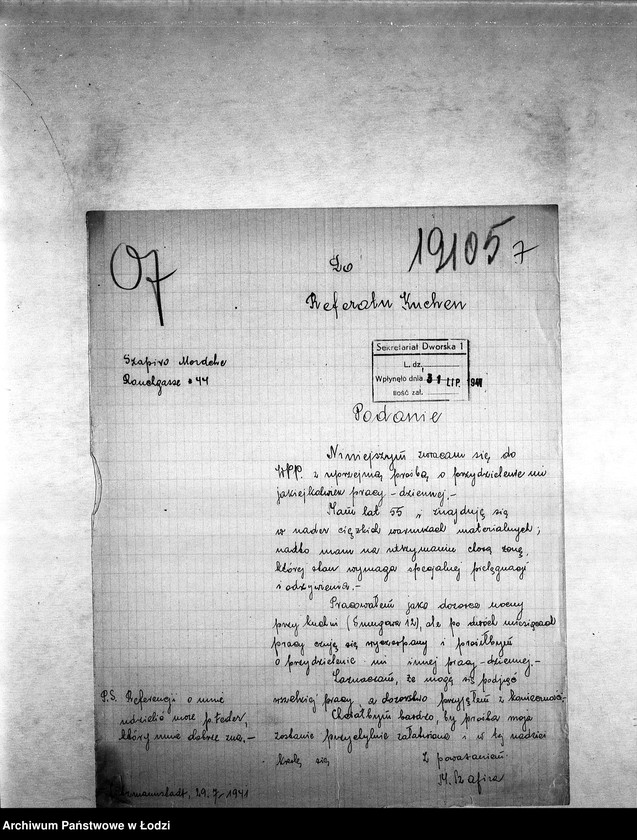 07
19105 7
Do
Referatu Kuchen
Szapiro Mordche
44
Sekretariat Dworska 1
L. dz.
Wpłynęło dnia 31 LIP. 1941
Ilość zał.
Podanie
Niniejszym zwracam się do
WPP. z uprzejmą prośbą o przydzielenie mi
jakiejkolwiek pracy - dziennej.-
Mam lat 55 i znajduję się
w nader ciężkich warunkach materialnych;
nadto mam na utrzymaniu chorą żonę,
której stan wymaga specjalnej pielęgnacji
i odżywienia.-
Pracowałem jako dozorca nocny
przy kuchni (12), ale po dwóch miesiącach
pracy czuję się wyczerpany i prosiłbym
o przydzielenie mi innej pracy - dziennej.-
Zaznaczam, że mogę się podjąć
wszelkiej pracy, a dozorstwo przyjąłem z konieczności.
Chciałbym bardzo, by prośba moja
zostanie przychylnie załatwiona i w tej nadziei
kreślę się
Z poważaniem
M. Szafira
P.S. Referencji o mnie
udzielić może p. Feder,
który mnie dobrze zna.-
29. 7. 1941
Archiwum Państwowe w Łodzi